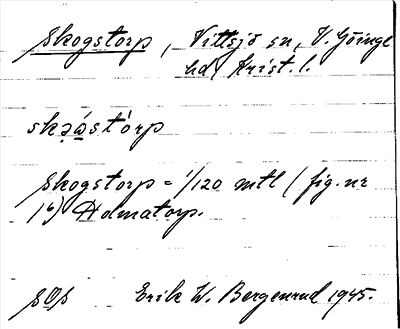 Skogstorp, Vittsjö sn, V. Göinge
hd Krist. l.
skə̣ά̱stȯ́rp
Skogstorp = 1/120 mtl (jfg. nr
16) Holmatorp.
SOS Erik W. Bergenrud 1945.